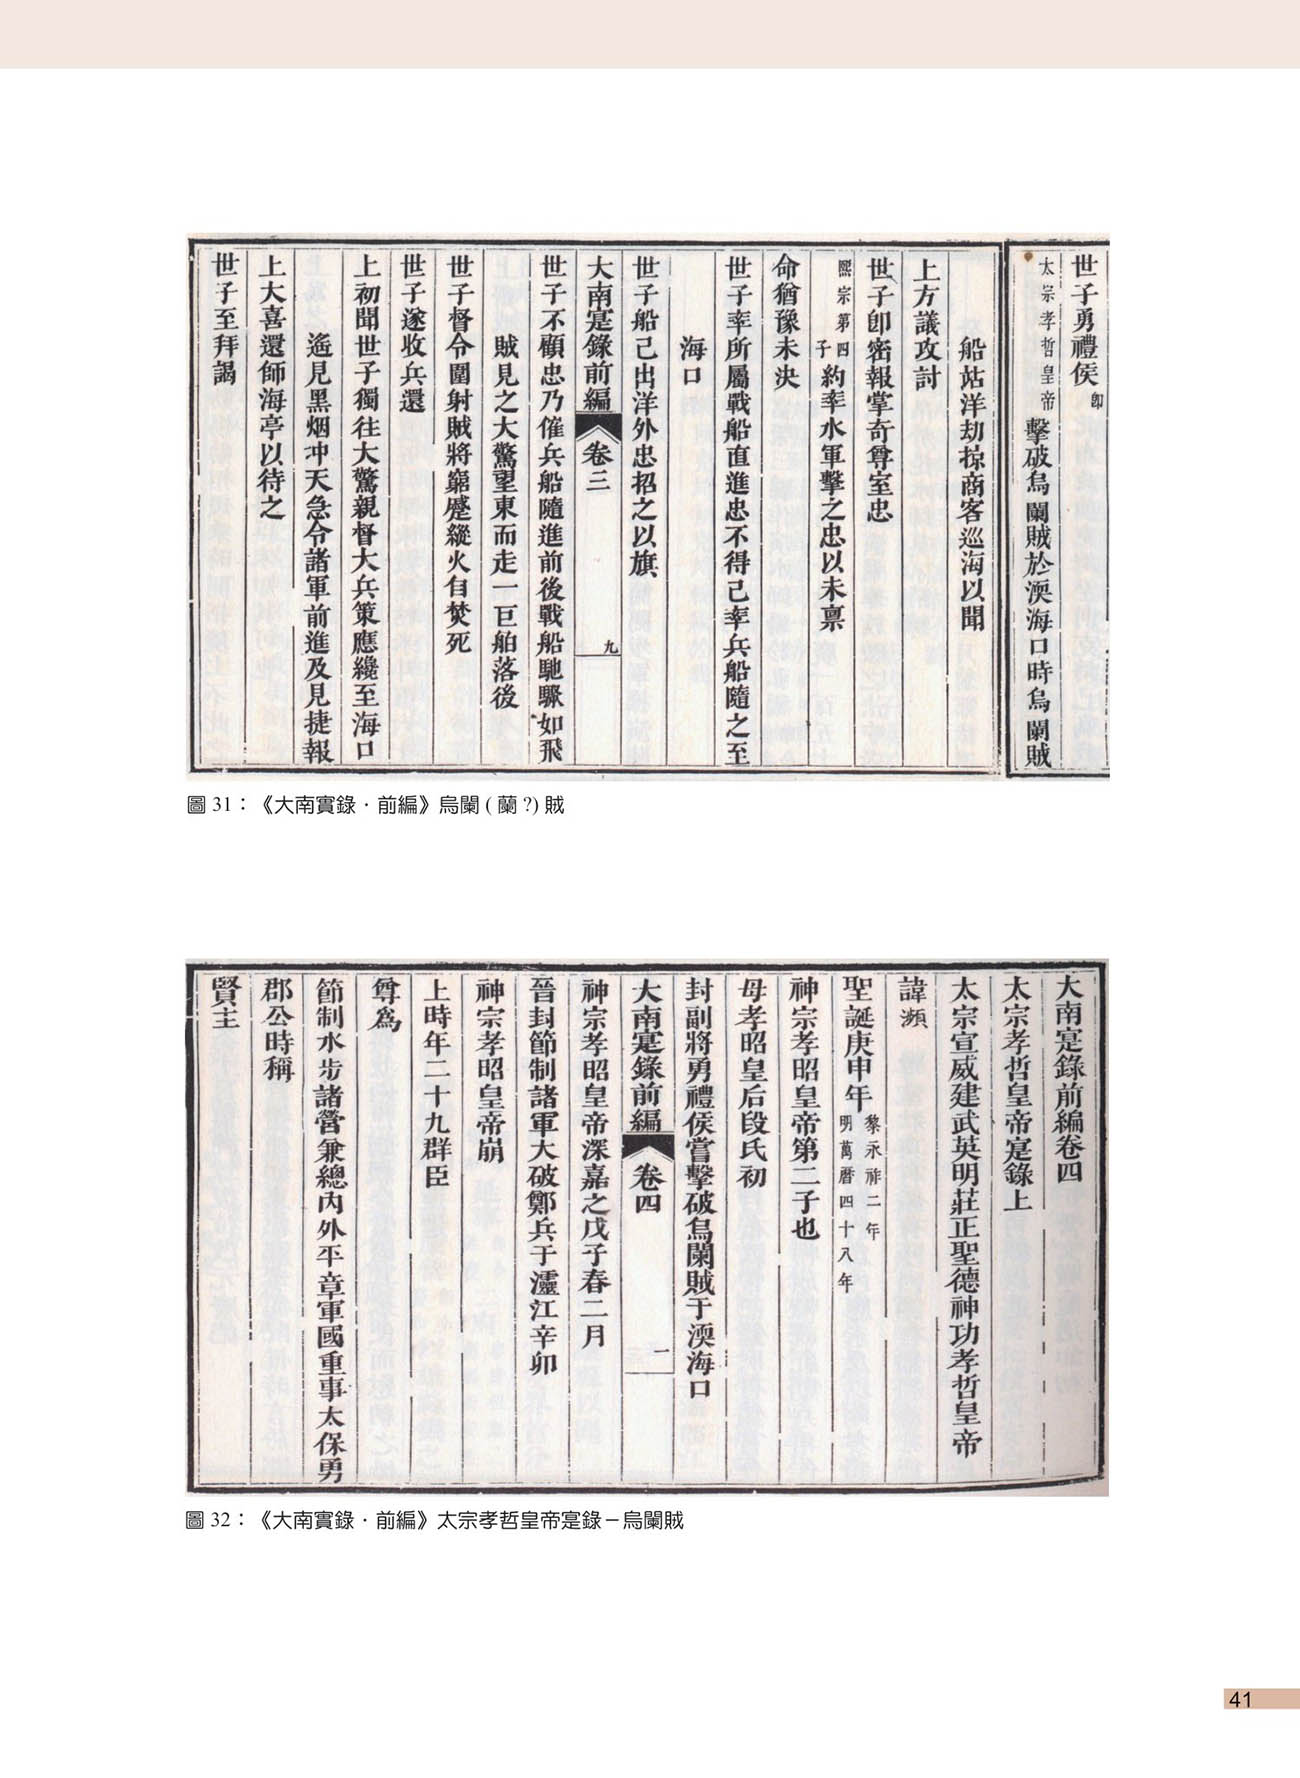 世子勇禮侯即
太宗孝哲皇帝擊破烏闌賊於渜海口時烏闌賊
船站洋劫掠商客巡海以聞
上方議攻討
世子卽密報掌奇尊室忠
熙宗第四子約率水軍擊之忠以未禀
命猶豫未決
世子率所屬戰船直進忠不得已率兵船隨之至
海口
世子船已出洋外忠招之以旗
大南寔錄前編 卷三 九
世子不顧忠乃催兵船隨進前後戰船馳驟如飛
賊見之大驚望東而走一巨舶落後
世子督令圍射賊將窮蹙縱火自焚死
世子遂收兵還
上初聞世子獨往大驚親督大兵策應纔至海口
遙見黑烟冲天急令諸軍前進及見捷報
上大喜還師海亭以待之
世子至拜謁
圖 31：《大南實錄‧前編》烏闌 ( 蘭 ?) 賊
大南寔錄前編卷四
太宗孝哲皇帝寔錄上
太宗宣威建武英明莊正聖德神功孝哲皇帝
諱瀕
聖誕庚申年黎永祚二年明萬曆四十八年
神宗孝昭皇帝第二子也
母孝昭皇后段氏初
封副將勇禮侯嘗擊破烏闌賊于渜海口
大南寔錄前編 卷四 一
神宗孝昭皇帝深嘉之戊子春二月
晉封節制諸軍大破鄭兵于灅江辛卯
神宗孝昭皇帝崩
上時年二十九群臣
尊爲
節制水步諸營兼總內外平章軍國重事太保勇
郡公時稱
賢主
圖 32：《大南實錄‧前編》太宗孝哲皇帝寔錄－烏闌賊
41